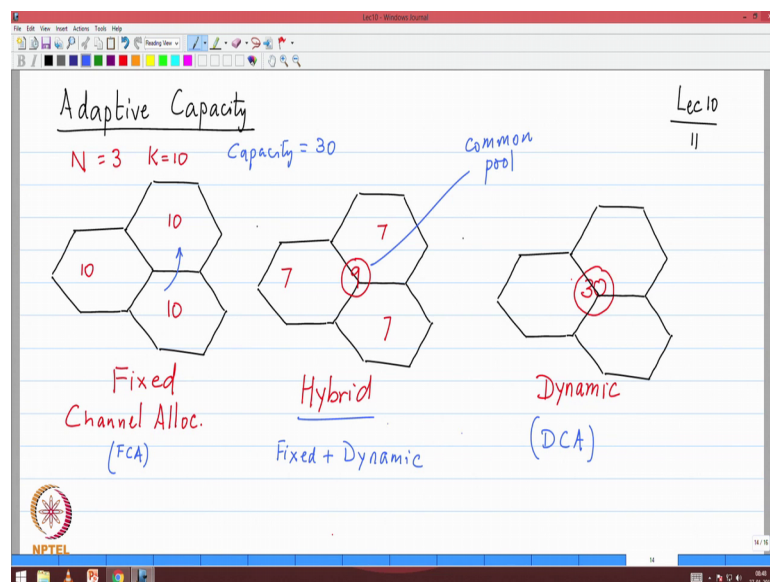 Lec10 - Windows Journal
File Edit View Insert Actions Tools Help
Reading View
B I
Adaptive Capacity
Lec 10
11
N = 3 K=10 Capacity = 30
common
pool
10
10
10
7
7
9
7
30
Fixed
Channel Alloc.
(FCA)
Hybrid
Fixed + Dynamic
Dynamic
(DCA)
NPTEL
14 / 16
14